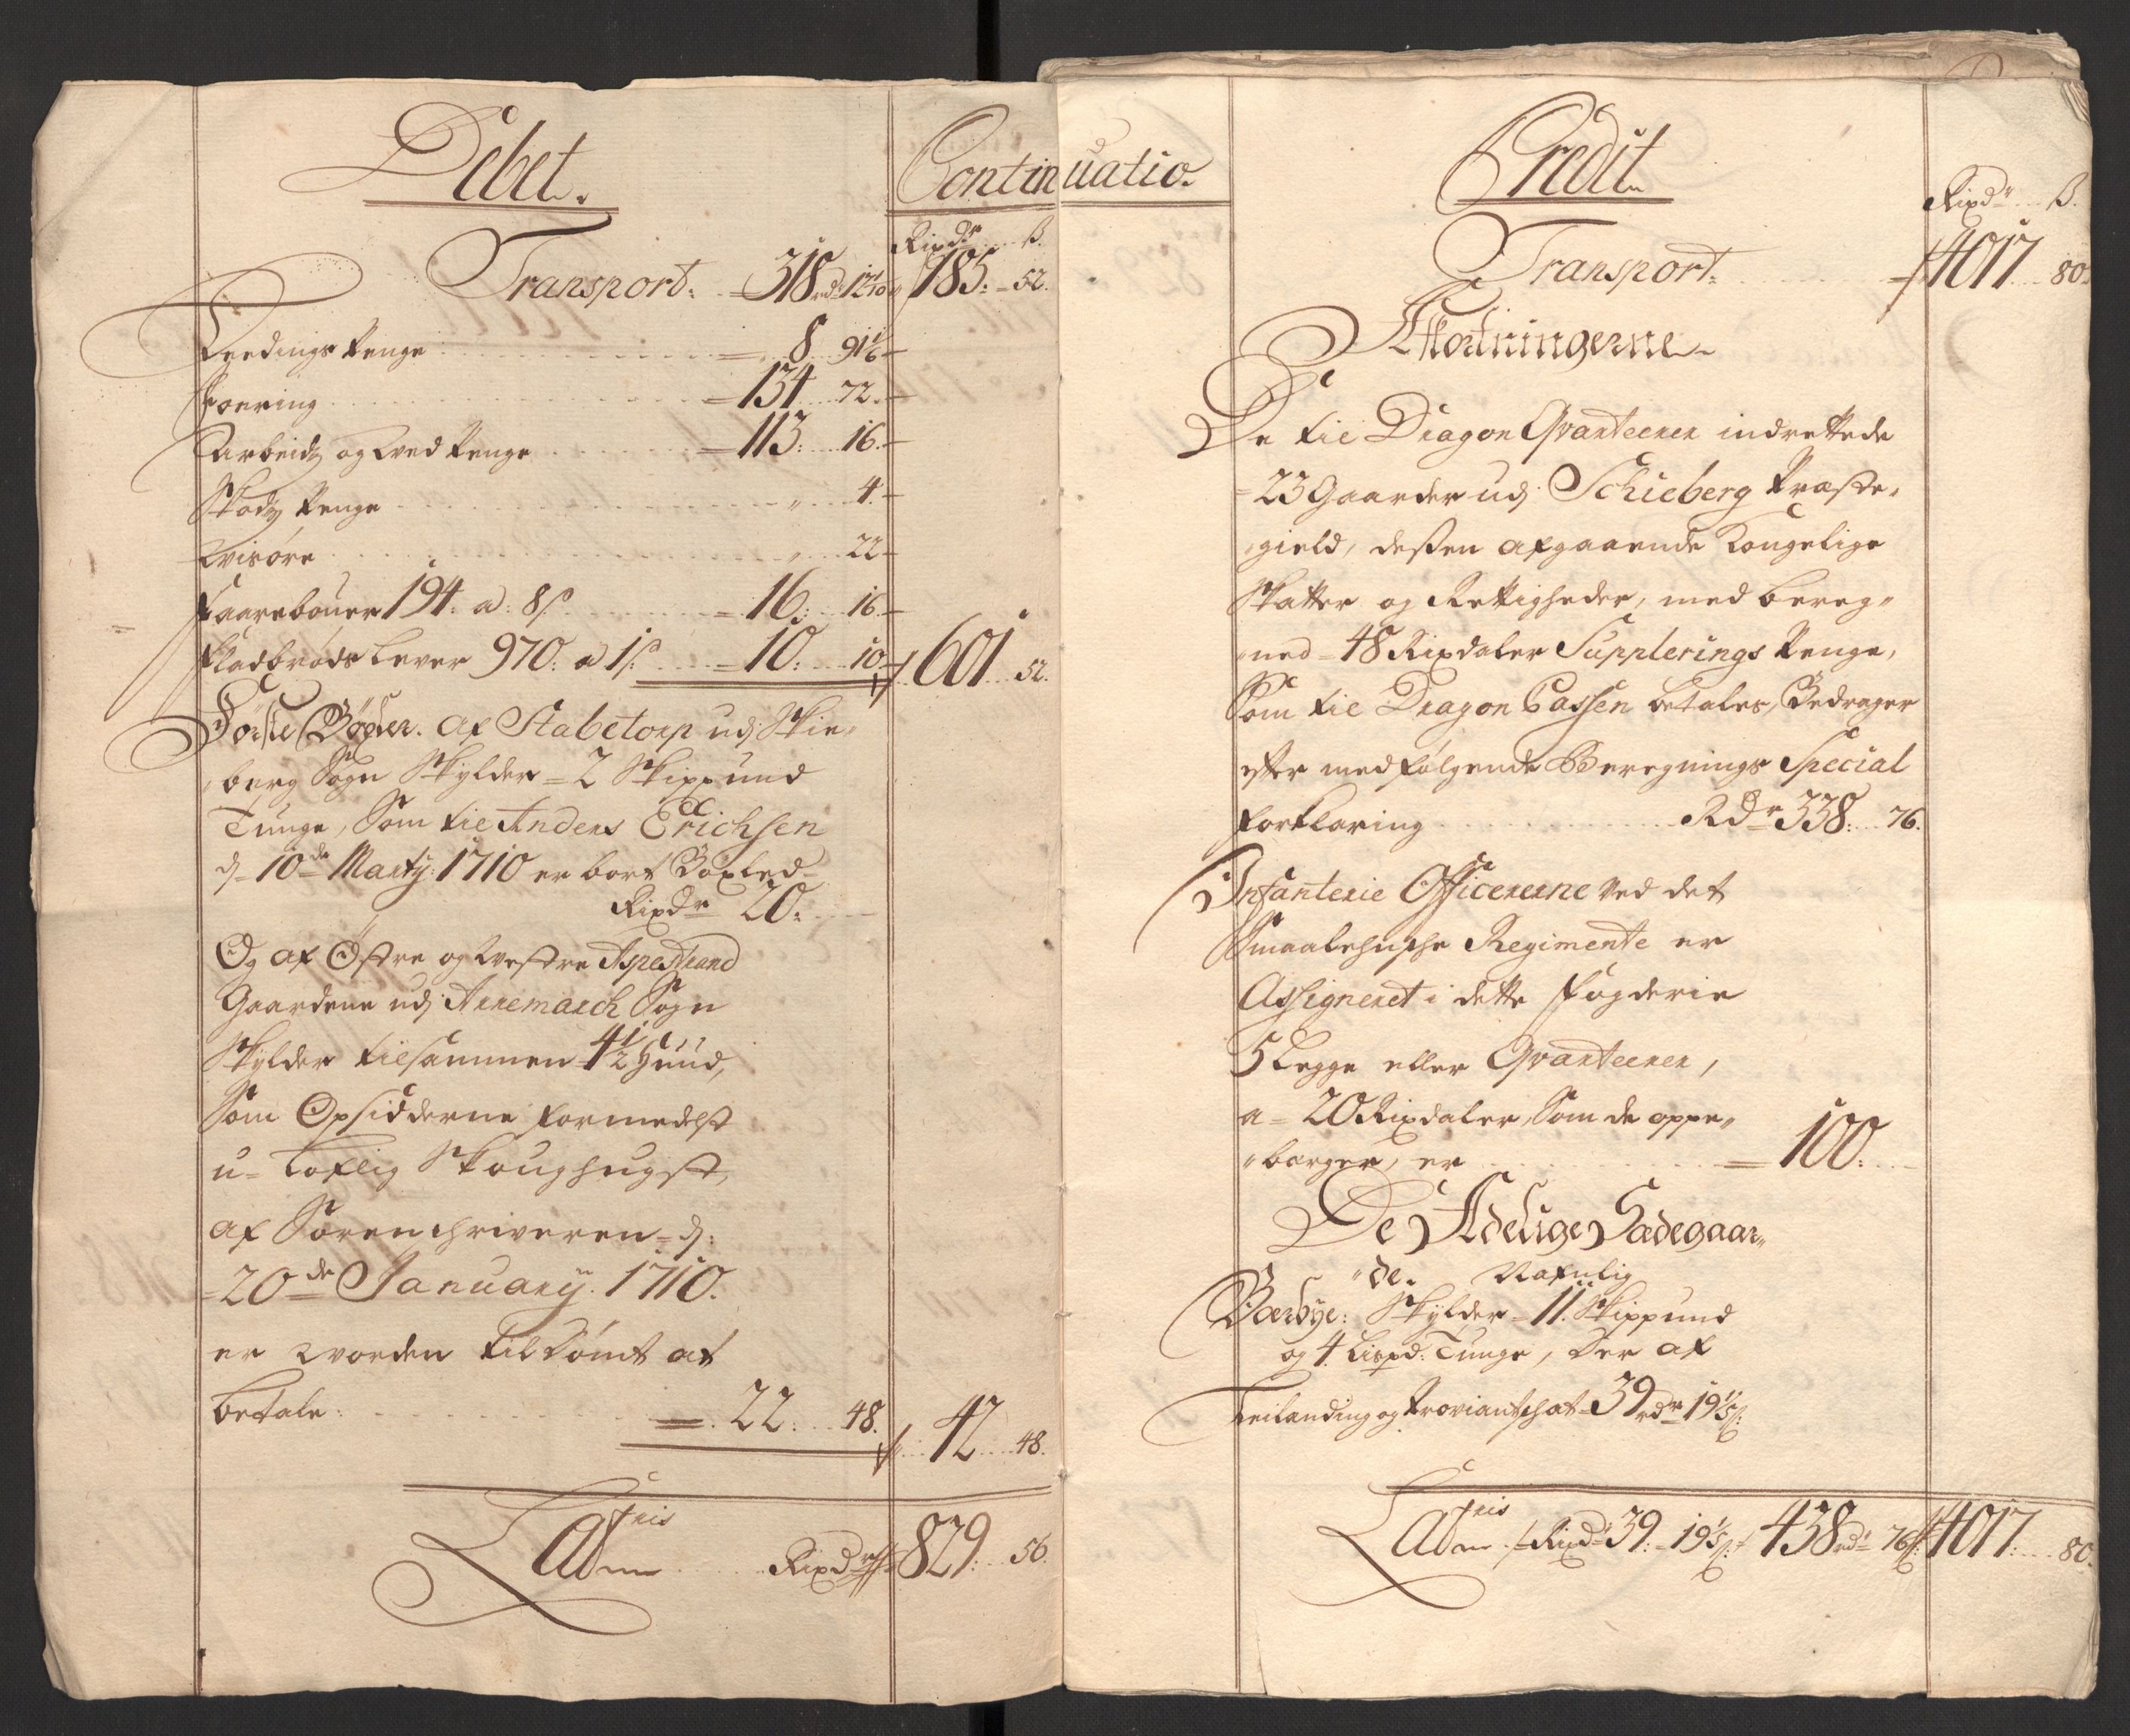 Debet.
Continuatio.
Rixdr ß.
Transport. 318 rdr 12 1/10 185: 52.
Leedings Penge 8 91 1/6
Foering 134 72.
Arbeids og Wed Penge 113: 16.
Skads Penge " 4.
Wisöre " 22
Faareböuer 194. a. 8 ß. 16: 16.
Fladbröds Lever 970: a 1 ß. 10: 10 601 52.
Förste Böxler. Af Stabetorp udj Skie-
berg Sogn Skylder 2 Skippund
Tunge, Som til Anders Erichsen
d 10de Marty: 1710 er bort Böxled
Rixdr 20:
Og af Østre og Westre Aspestrand
Gaardene udj Arremarch Sogn
Skylder tilsammen 4 1/2 Huud,
Som Opsidderne formedelst
u-Loflig Skoughugst,
af Sorenschriveren d:
20de January. 1710.
er worden tildömt at
betale: 22: 48. 42 48.
Lateris Rixdr 829: 56.
Credit
Rixdr ß.
Transport: 4017 80.
Afkortningerne
De til Dragon Qvarteerer indrettede
23 Gaarder udj Schieberg Præste-
gield, dessen afgaaende Kongelige
Skatter og Rettigheder, med bereg-
ned 48 Rixdaler Supplerings Penge,
Som til Dragon Cassen betales, Bedrager
efter medfølgende Beregnings Special
forklaring Rdr 338: 76.
Infanterie Officererne ved det
Smaalehnsche Regimente er
Assigneret i dette Fogderie
5 Legge eller Qvarteerer,
a 20 Rixdaler, Som de oppe-
barger, er 100:
De Adelige Sædegaar-
de. Nafnlig
Barbye: Skylder 11. Skippund
og 4. Lispd: Tunge, Der af
Leilanding og Proviantschat 39 rdr 19 1/5 ß:
Lateris Rixdr 39: 19 1/5 ß: 438 rdr 76 ß: 4017: 80.